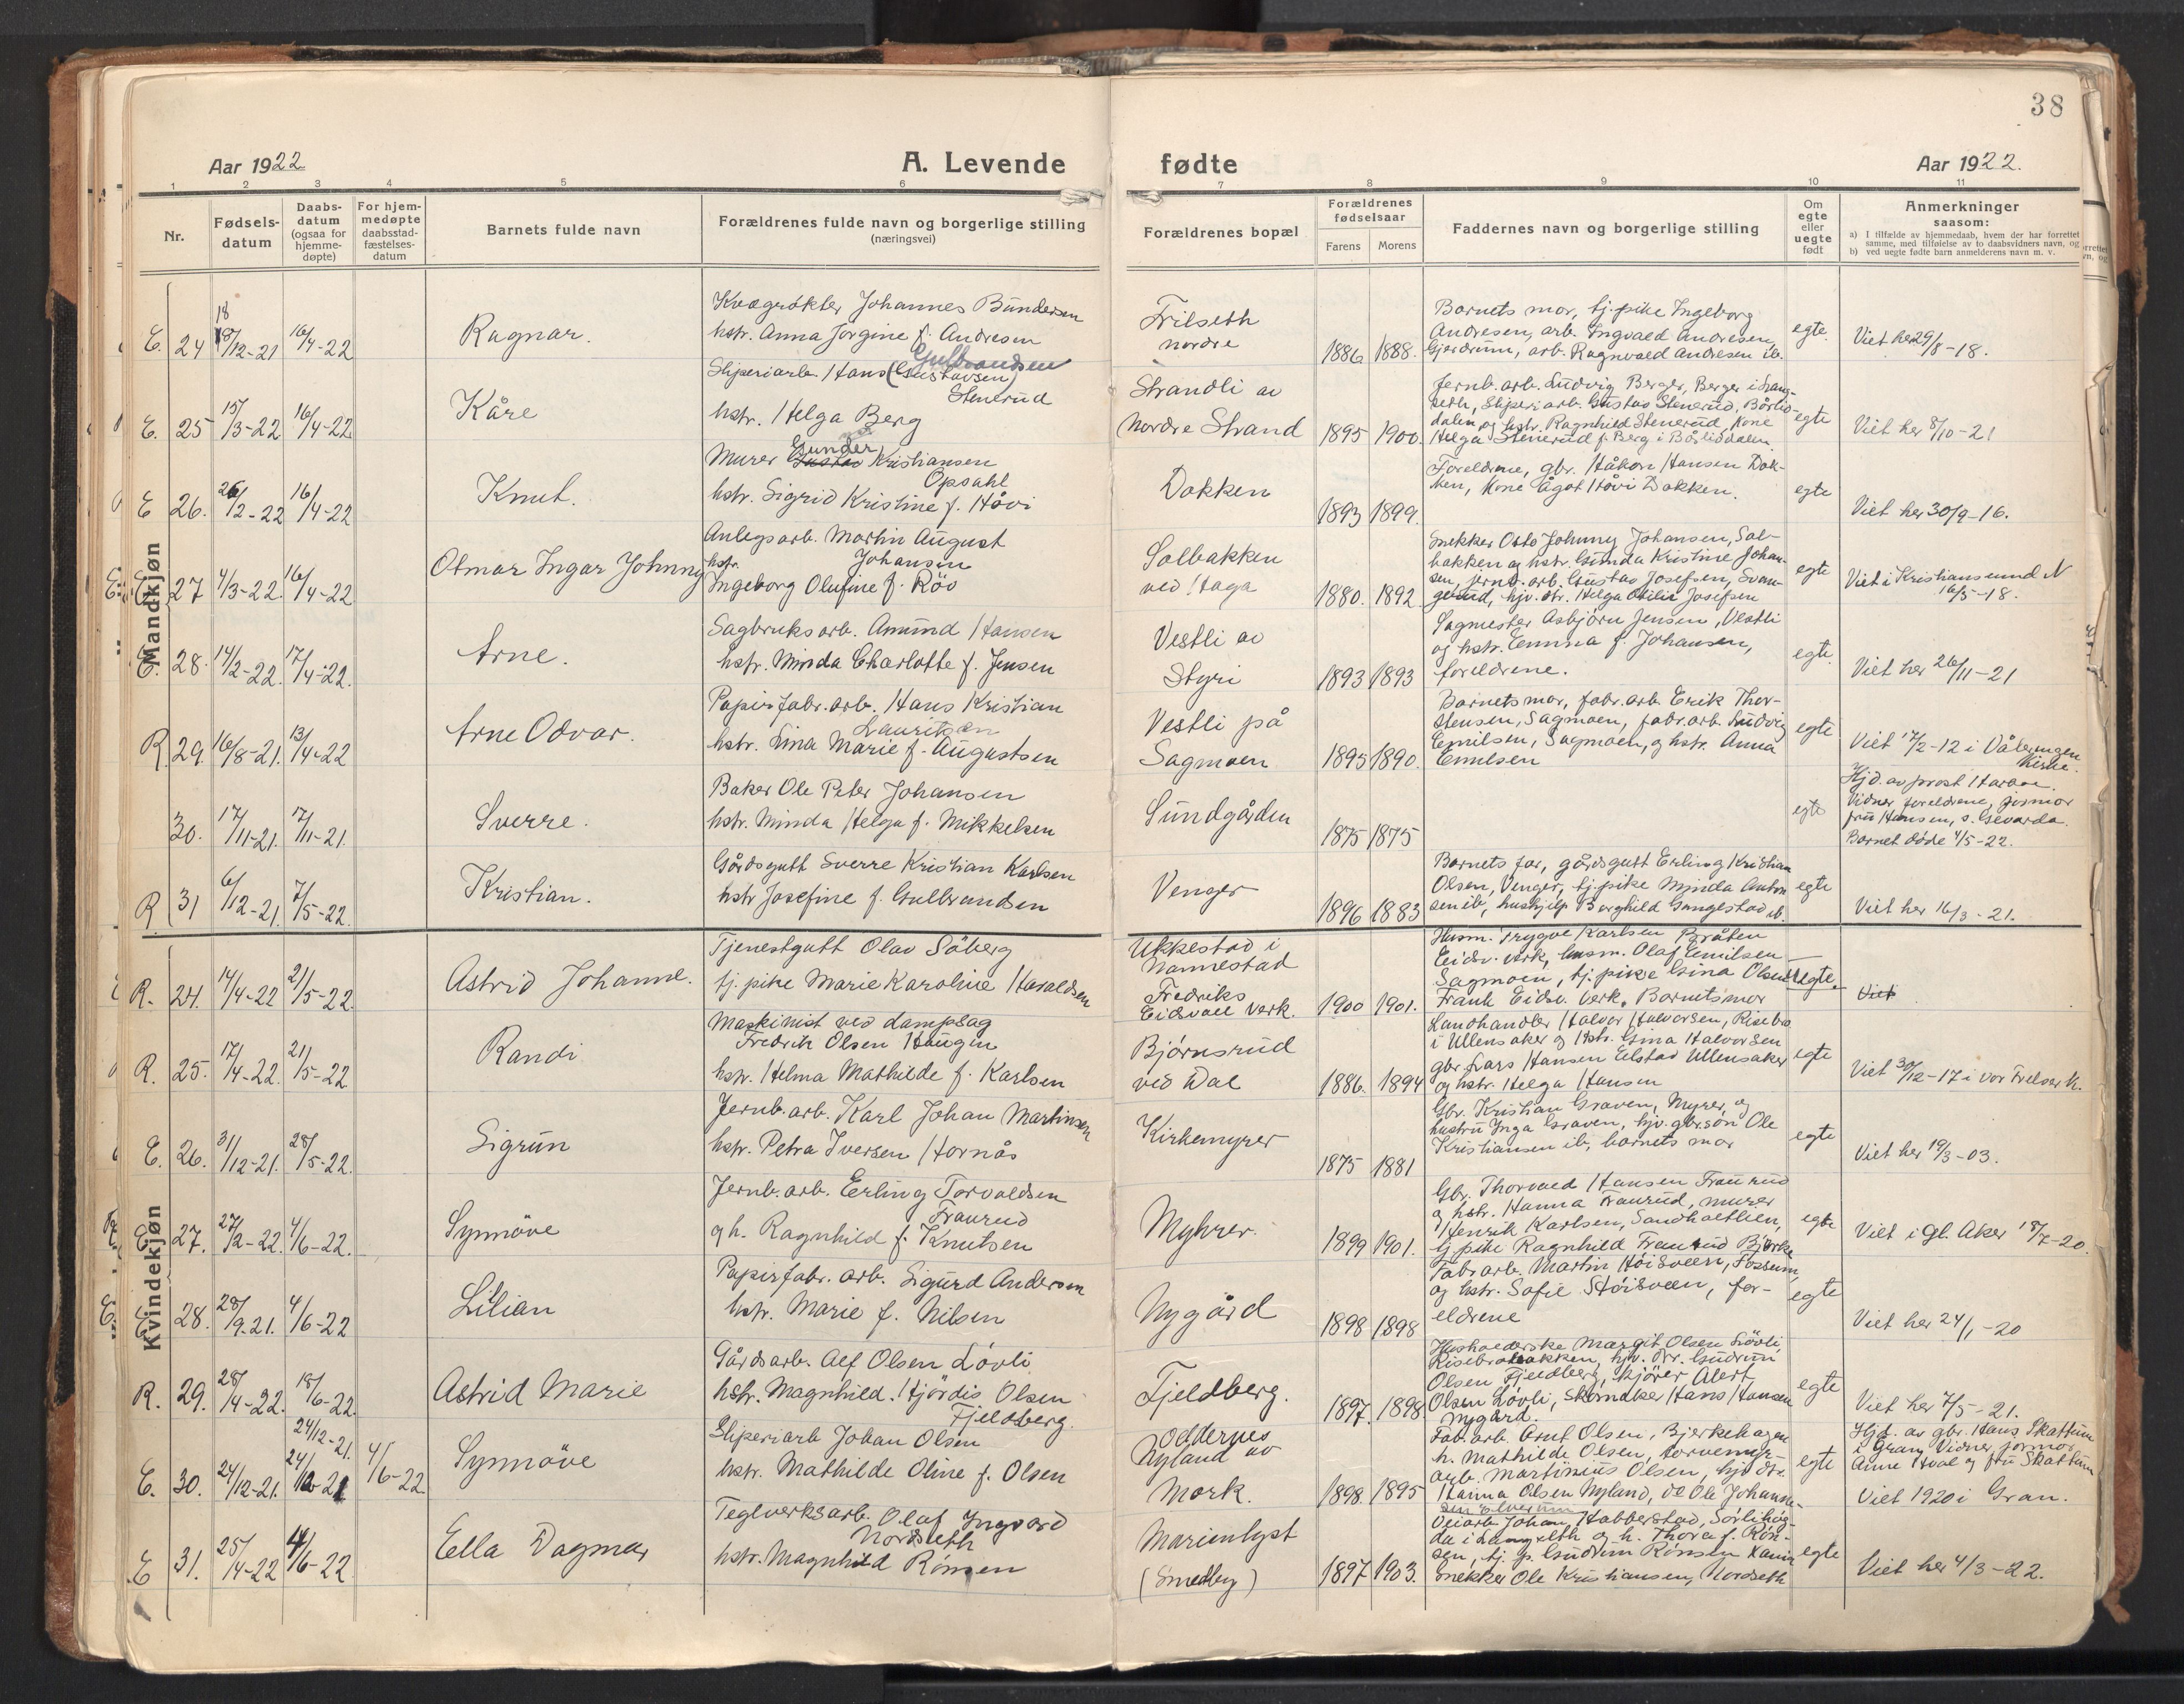 38
Aar 1922
A. Levende
fødte
Aar 1922.
1 2 3 4 5 6 7 8 9 10 11
Nr.
Fødsels-
datum
Daabs-
datum
(ogsaa for
hjemme-
døpte)
For hjem-
medøpte
daabsstad-
fæstelses-
datum
Barnets fulde navn
Forældrenes fulde navn og borgerlige stilling
(næringsvei)
Forældrenes bopæl
Forældrenes
fødselsaar
Farens Morens
Faddernes navn og borgerlige stilling
Om
egte
eller
uegte
født
Anmerkninger
saasom:
a) I tilfælde av hjemmedaab, hvem der har forrettet
samme, med tilføielse av to daabsvidners navn, og
b) ved uegte fødte barn anmelderens navn m. v.
Mandkjøn
E. 24 18/12-21 16/4-22
Ragnar.
Kvægrøkter Johannes Bundersen
hstr. Anna Jorgine f. Andresen
Frilseth
nordre
1886 1888.
Barnets mor, tj.pike Ingeborg
Andresen, arb. Ingvald Andresen,
Gjerdrum, arb. Ragnvald Andresen ib.
egte.
Viet her 29/8-18.
E. 25 15/3-22 16/4-22
Kåre
Sliperiarb. Hans (Gustavsen) Gulbrandsen
Stenerud
hstr. Helga Berg
Strandli av
Nordre Strand
1895 1900.
Jernb.arb. Ludvig Berger, Berger i Lang-
seth, Sliperiarb. Gustav Stenerud, Bårlids-
dalen, og hstr. Ragnhild Stenerud, Kone
Helga Stenerud f. Berg i Bårlidsdalen
egte
Viet her 8/10-21
E 26. 26/2-22 16/4-22
Knut.
Murer Gunder Kristiansen
Opsahl
hstr. Sigrid Kristine f. Håvi
Dokken
1893 1899.
Foreldrene, gbr. Håkon Hansen Dok-
ken, Kone Ågot Håvi Dokken.
egte
Viet her 30/9-16.
E. 27 4/3-22. 16/4-22
Otmar Ingar Johnny
Anlegsarb. Martin August
Johansen
hstr.
Ingeborg Olufine f. Röv
Solbakken
ved Haga
1880. 1892
Snekker Otto Johnny Johansen, Sol-
bakken og hstr. Gunda Kristine Johan-
sen, jernb.arb. Gustav Josefsen, Svan-
gerud, hjv. dtr. Helga Otilie Josefsen
egte
Viet i Kristiansund N
16/5-18.
E. 28. 14/2-22. 17/4-22.
Arne.
Sagbruksarb. Amund Hansen
hstr. Minda Charlotte f. Jensen
Vestli av
Styri
1893 1893
Sagmester Asbjörn Jensen, Vestli
og hstr. Emma f. Johansen,
foreldrene.
egte.
Viet her 26/11-21
R. 29. 16/8-21. 13/4-22
Arne Odvar.
Papirfabr.arb. Hans Kristian
Lauritsen
hstr. Lina Marie f. Augustsen
Vestli på
Sagmoen
1895 1890.
Barnets mor, fabr.arb. Erik Thor-
stensen, Sagmoen, fabr.arb. Ludvig
Emilsen, Sagmoen, og hstr. Anna
Emilsen
egte
Viet 17/2-12 i Vålerengen
Kirke.
30. 17/11-21. 17/11-21.
Sverre.
Baker Ole Peter Johansen
hstr. Minda Helga f. Mikkelsen
Sundgården
1875 1875
egte
Hjd. av prost Harave.
Vidner foreldrene, jormor
fru Hansen, s. Gevarda.
Barnet døde 4/5-22.
R. 31 6/12-21. 7/5-22
Kristian.
Gårdsgutt Sverre Kristian Karlsen
hstr Josefine f. Gulbrandsen
Venger
1896 1883
Barnets far, gårdsgutt Erling Kristian
Olsen, Venger, tj.pike Minda Anton
sen ib, hushjelp Borghild Gangestad ib.
egte
Viet her 16/3-21.
Kvindekjøn
R. 24. 14/4-22 21/5-22.
Astrid Johanne.
Tjenestgutt Olav Såberg
tj.pike Marie Karoline Haraldsen
Ukkestad i
Nannestad
Fredriks
Eidsvoll Verk.
1900 1901.
Husm. Trygve Karlsen Bråten
Eidsv. Verk, husm. Olaf Emilsen
Sagmoen, tj.pike Gina Olsen
Frank Eidsv. Verk. Barnets mor
uegte.
Viet
R. 25. 17/4-22. 21/5-22
Randi
Maskinist ved dampsag
Fredrik Olsen Haugen
hstr. Helma Mathilde f. Karlsen
Bjørnsrud
ved Dal
1886. 1894
Landhandler Halvor Halvorsen, Risebro
i Ullensaker og Hstr. Gina Halvorsen
gbr. Lars Hansen Elstad Ullensaker
og hstr. Helga Hansen
egte
Viet 30/12-17 i Vor Frelser K.
E. 26. 31/12-21. 28/5-22.
Sigrun
Jernb.arb. Karl Johan Martinsen
hstr. Petra Iversen Hornås
Kirkemyrer
1875 1881
Gbr. Kristian Graven, Myrer, og
hustru Inga Graven, hjv. gbr.søn Ole
Kristiansen ib, barnets mor
egte
Viet her 19/3-03.
E. 27. 27/2-22. 4/6-22.
Synnöve
Jernb.arb. Erling Torvaldsen
Traurud
og h. Ragnhild f. Knutsen
Myhrer.
1899 1901.
Gbr. Thorvald Hansen Traurud
og hstr. Hanna Traurud, murer
Henrik Karlsen, Sandholtlien,
tj.pike Ragnhild Traurud Bjerke
egte
Viet i gl. Aker 18/7-20.
E. 28. 28/9-21. 4/6-22
Lilian
Papirfabr. arb. Sigurd Andersen
hstr. Marie f. Nilsen
Nygård
1898 1898
Fabr.arb. Martin Höisveen, Fossum,
og hstr. Sofie Höisveen, for-
eldrene
egte
Viet her 24/1-20
R. 29. 28/4-22. 18/6-22.
Astrid Marie
Gårdsarb. Alf Olsen Lövli
hstr. Magnhild Hjördis Olsen
Fjeldberg.
Fjeldberg.
1897. 1898
Husholderske Margit Olsen Lövli
Risebrobakken, hjv. dtr. Gudrun
Olsen Fjeldberg, kjörer Alert
Olsen Lövli, Skomaker Hans Hansen
Nygård.
egte
Viet her 7/5-21.
E. 30. 24/12-21. 24/12-21. 24/12-21 4/6-22
Synnöve
Sliperiarb Johan Olsen
hstr. Mathilde Oline f. Olsen
Oddernes
Nyland av
Mork.
1898. 1895
Fab.arb. Arnt Olsen, Bjerkehagen
h. Mathilde Olsen, torvemyr-
arb. Martinius Olsen, hjv dtr.
Hanna Olsen Nyland, Ole Johanne-
sen Elverum
egte
Hjd. av gbr. Hans Skattum
i Gran, Vidner, jormor
Anne Hval og fru Skattum
Viet 1920 i Gran.
E 31. 25/4-22 4/6-22
Ella Dagmar
Teglverksarb. Olaf Ingvard
Nordseth
hstr. Magnhild Rönsen
Marienlyst
(Smedby)
1897 1903.
Veiarb. Johan Habberstad, Sörlihög-
da i Langseth og h. Thora f. Rön-
sen, tj.p. Gudrun Rönsen
Snekker Ole Kristiansen, Nordseth
egte
Viet her 4/3-22.